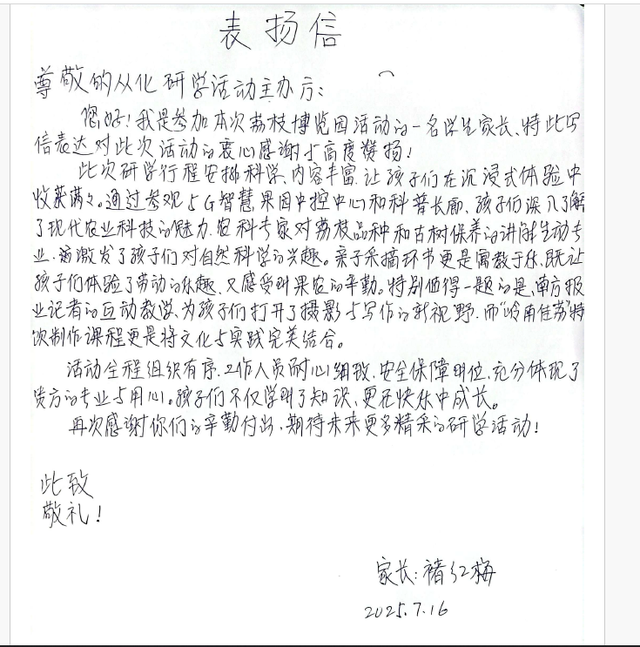 表扬信
尊敬的从化研学活动主办方：
您好！我是参加本次荔枝博览园活动的一名学生家长，特此写
信表达对此次活动的衷心感谢与高度赞扬！
此次研学行程安排科学、内容丰富，让孩子们在沉浸式体验中
收获满满。通过参观5G智慧果园中控中心和科普长廊，孩子们深入了解
了现代农业科技的魅力，农科专家对荔枝品种和古树保养的讲解生动专
业，激发了孩子们对自然科学的兴趣。亲子采摘环节更是寓教于乐，既让
孩子们体验了劳动的乐趣，又感受到果农的辛勤。特别值得一题的是，南方报
业记者的互动教学，为孩子们打开了摄影与写作的新视野，而“岭南佳荔”特
饮制作课程更是将文化与实践完美结合。
活动全程组织有序，工作人员耐心细致，安全保障到位，充分体现了
贵方的专业与用心。孩子们不仅学到了知识，更在快乐中成长。
再次感谢你们的辛勤付出，期待未来更多精采的研学活动！
此致
敬礼！
家长：褚红梅
2025.7.16